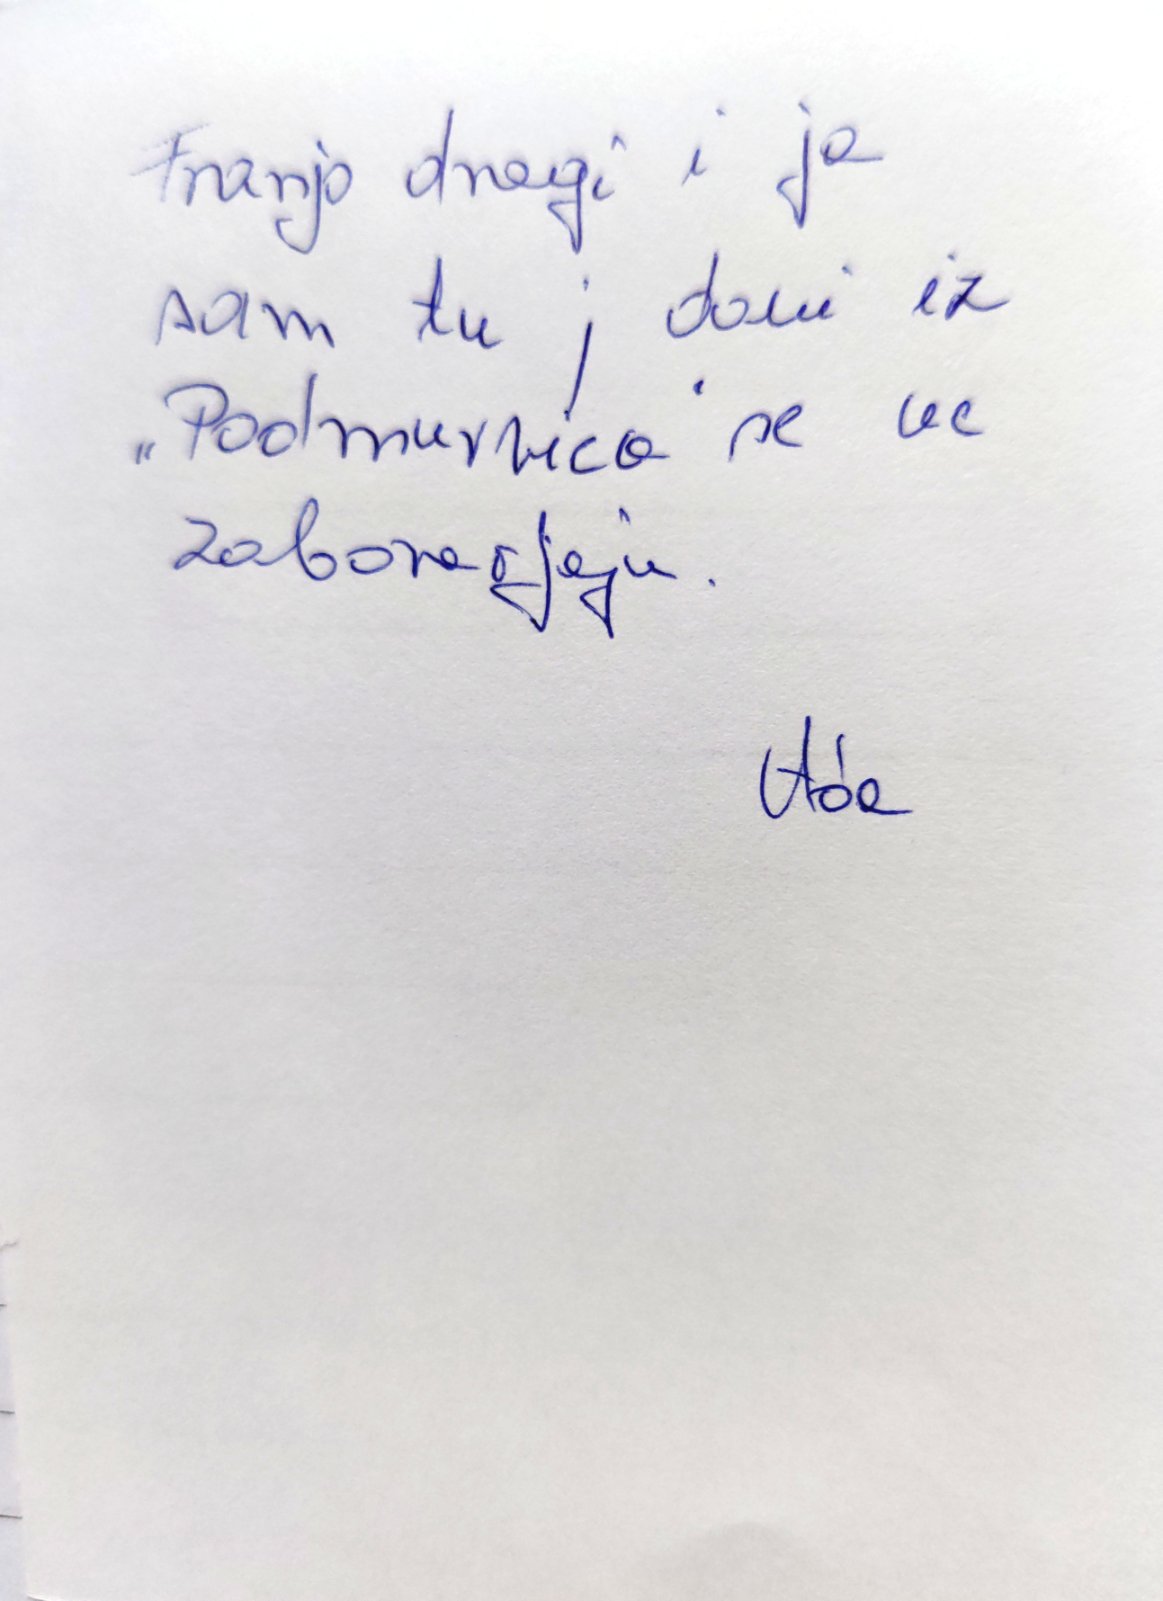 Franjo dragi i ja
sam tu j doni iz
„Podmurvica" se ne
zaboravljaju.